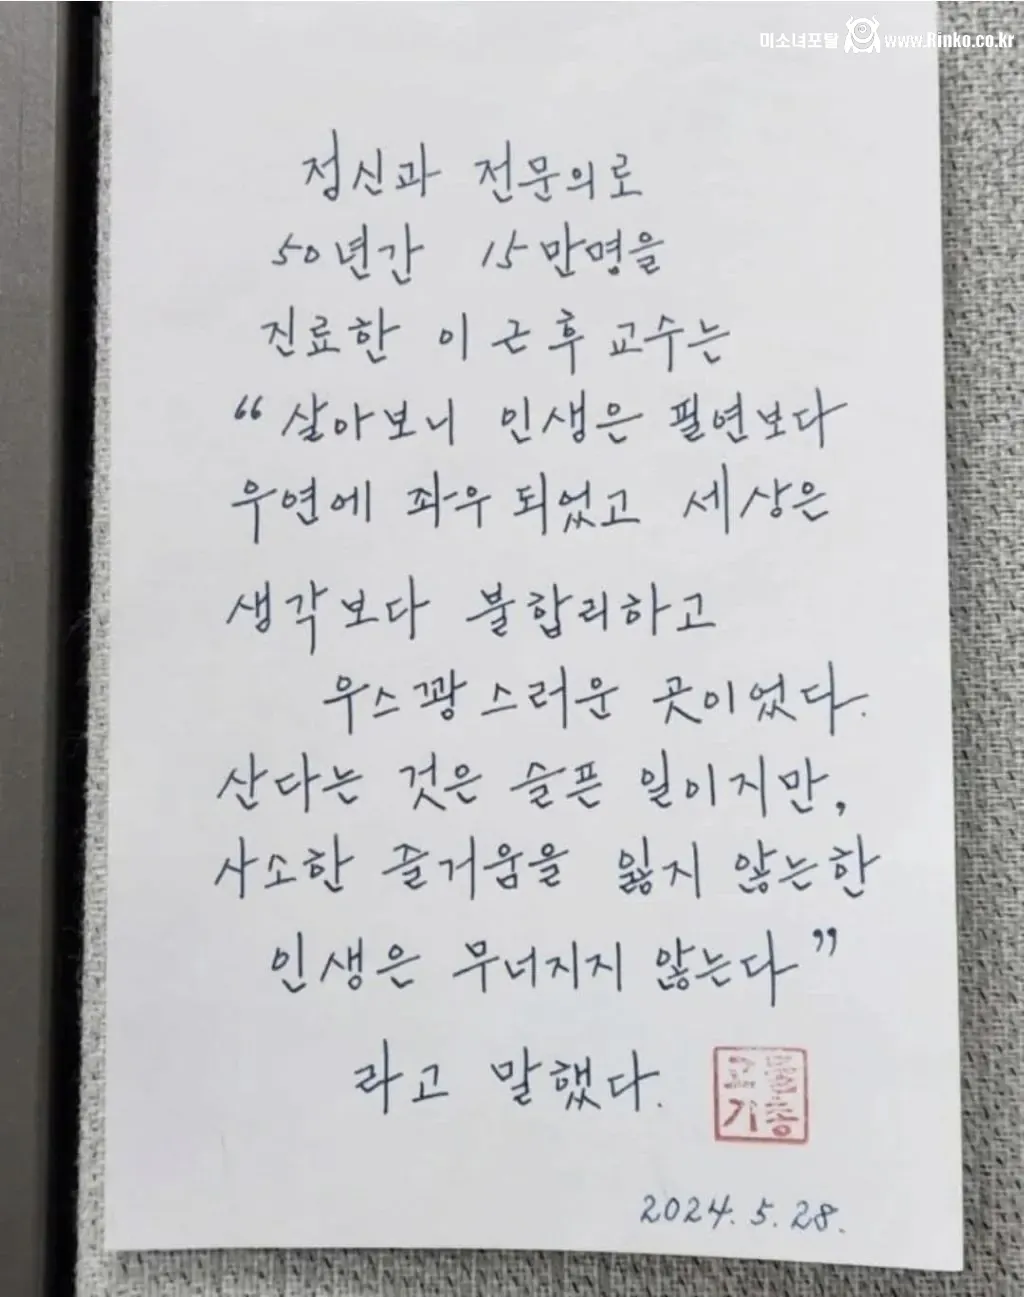 미소녀포탈 www.Rinko.co.kr
정신과 전문의로
50년간 15만명을
진료한 이근후 교수는
“살아보니 인생은 필연보다
우연에 좌우 되었고 세상은
생각보다 불합리하고
우스꽝스러운 곳이었다.
산다는 것은 슬픈 일이지만,
사소한 즐거움을 잃지 않는한
인생은 무너지지 않는다”
라고 말했다.
2024. 5. 28.